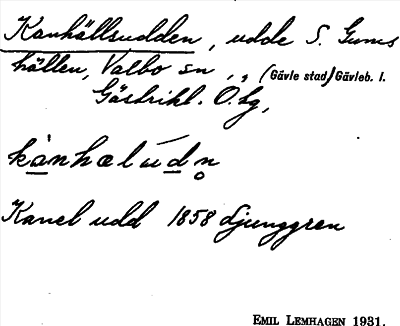 Kanhällsudden, udde S. Gums
hällen, Valbo sn, „ (Gävle stad) Gävleb. l.
Gästrikl. O. Lg,
kànhælúdn̥
Kanel udd 1858 Ljunggren
EMIL LEMHAGEN 1931.